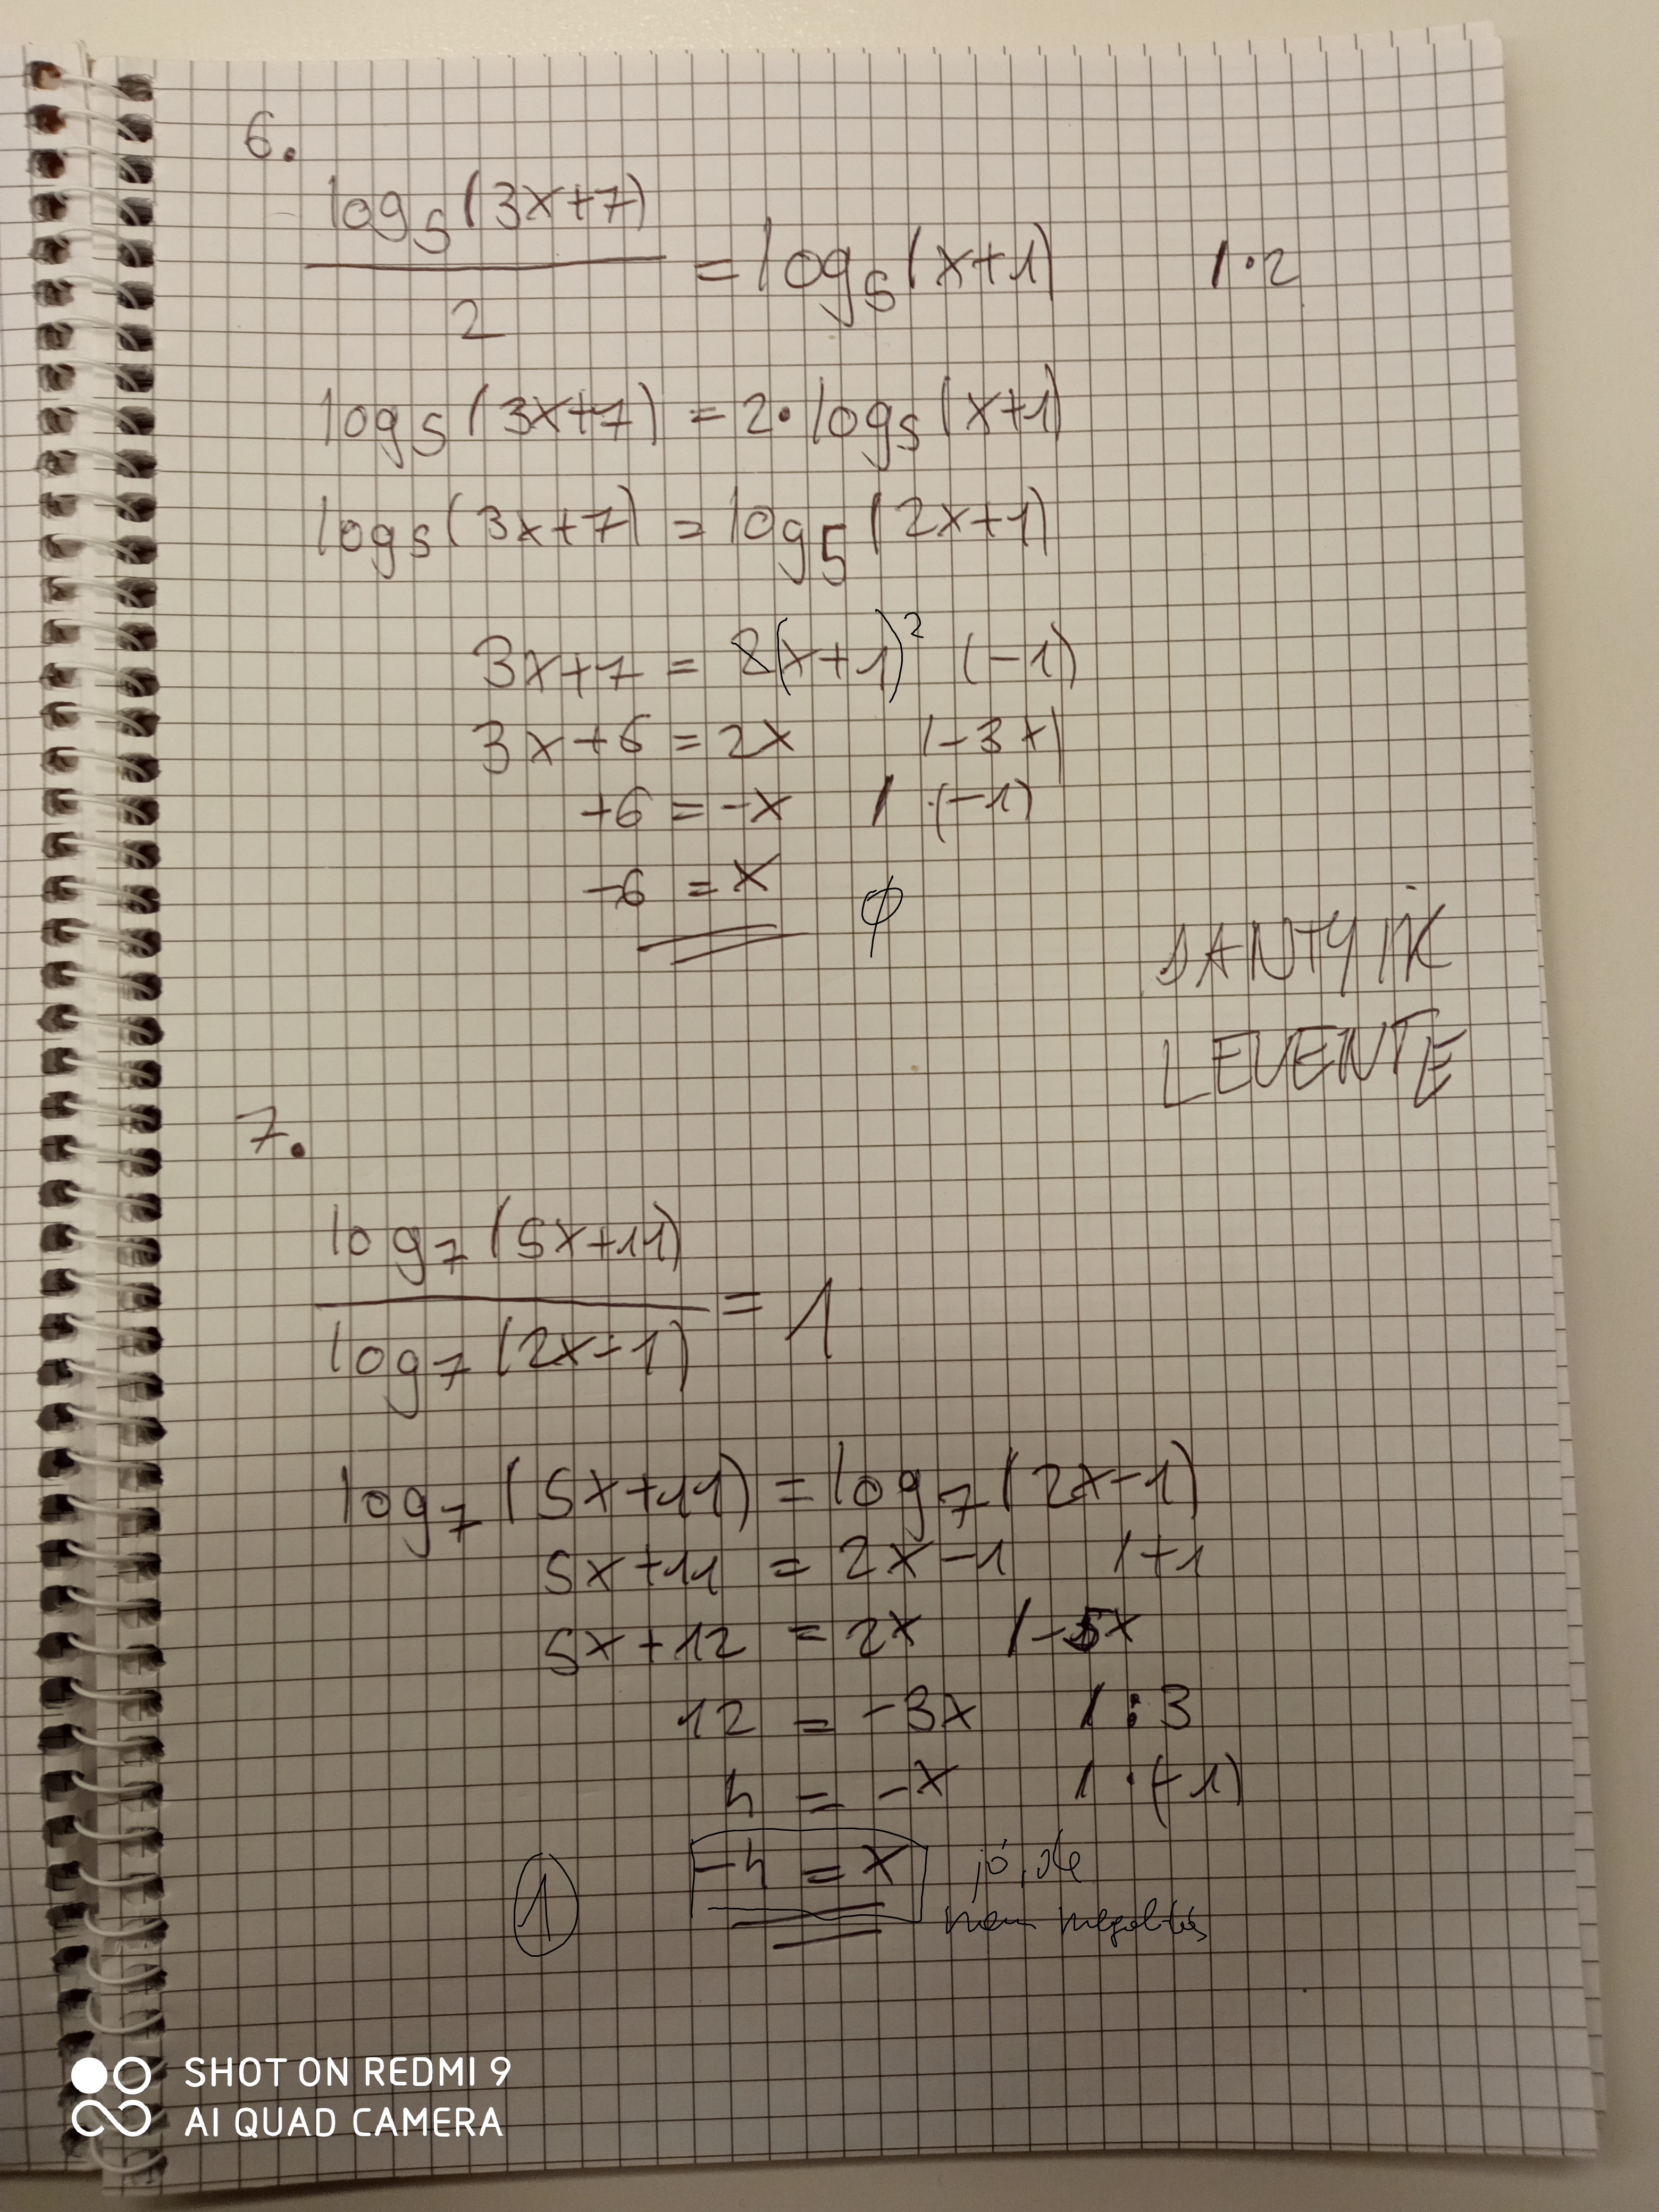 6.
log₅(3x+7)
2
= log₅(x+1) /·2
log₅(3x+7) = 2·log₅(x+1)
log₅(3x+7) = log₅(2x+1)
3x+7 = 2(x+1)² (-1)
3x+6 = 2x /-3x
+6 = -x / ·(-1)
-6 = x ϕ
SANTYIK
LEVENTE
7.
log₇(5x+11)
log₇(2x-1)
= 1
log₇(5x+11) = log₇(2x-1)
5x+11 = 2x-1 /+1
5x+12 = 2x /-5x
12 = -3x /:3
4 = -x /·(-1)
① -4 = x jó, de
nem megoldás
SHOT ON REDMI 9
AI QUAD CAMERA